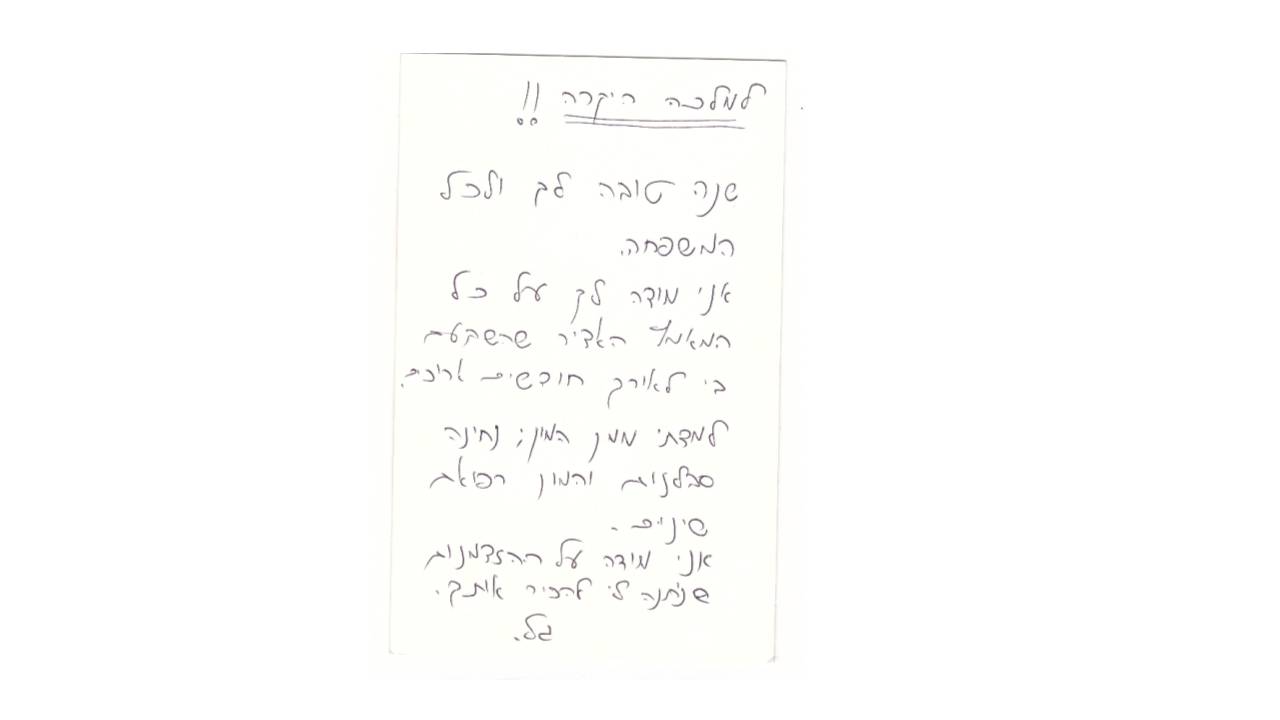 למלכה היקרה !!
שנה טובה לך ולכל
המשפחה.
אני מודה לך על כל
המאמץ האדיר שהשקעת
בי לאורך חודשים ארוכים.
למדתי ממך המון; נתינה
סבלנות והמון רפואת
שיניים.
אני מודה על ההזדמנות
שניתנה לי להכיר אותך.
גל.